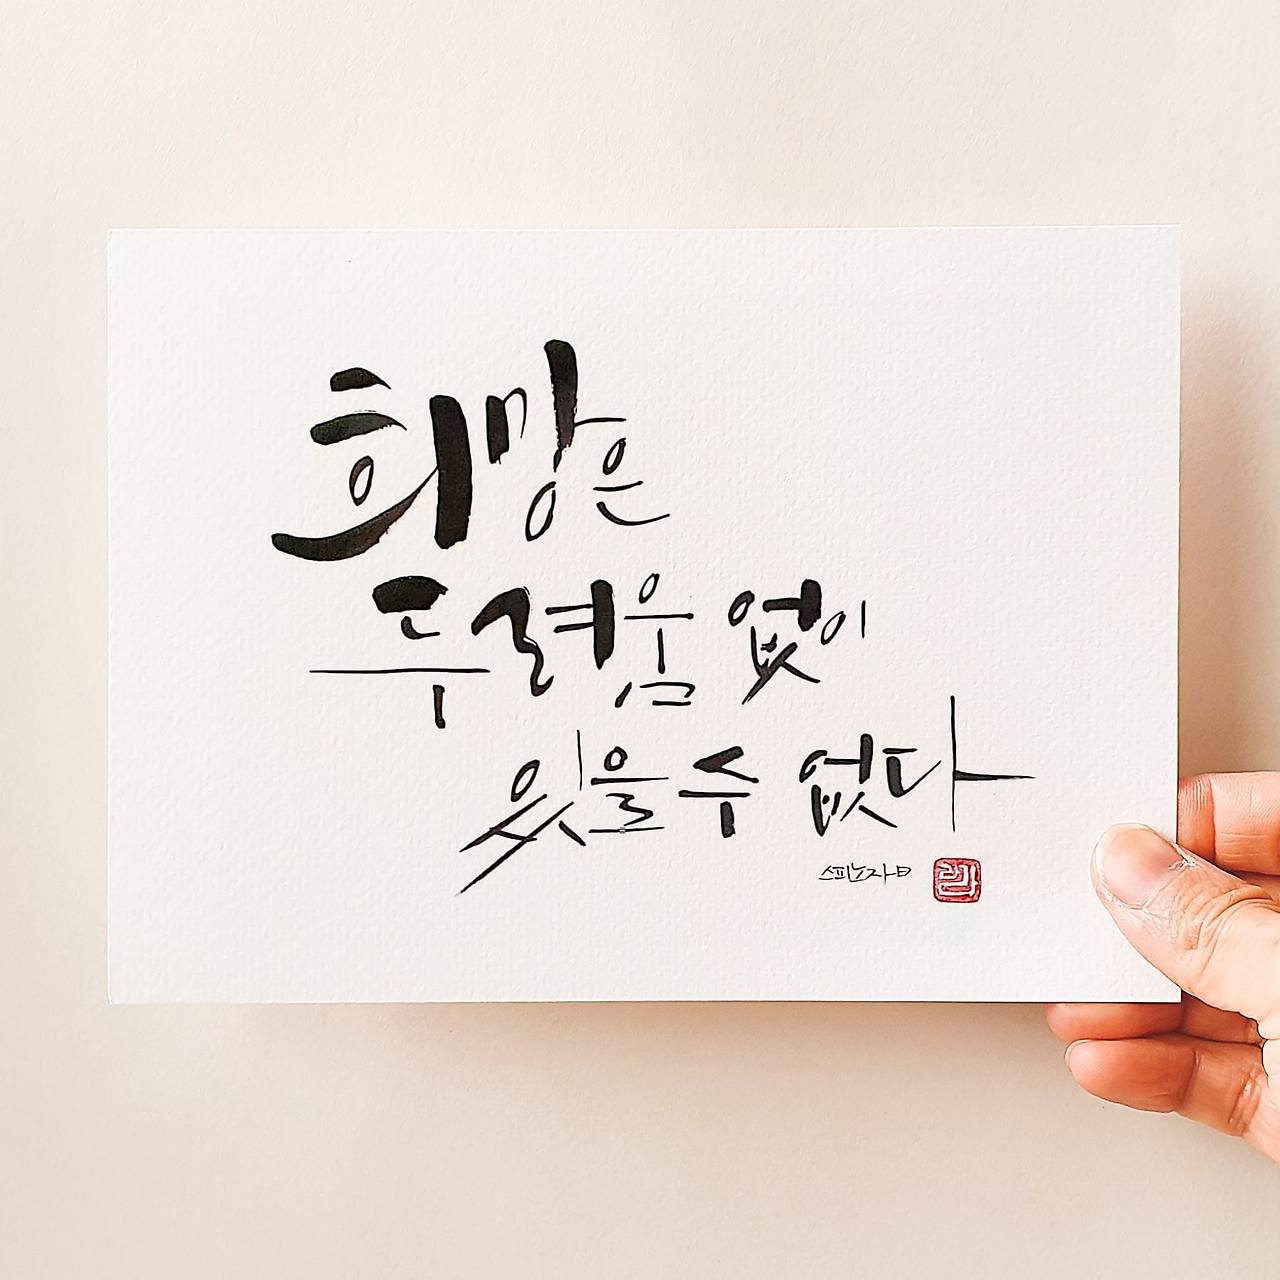 희망은
두려움 없이
있을 수 없다
스피노자曰